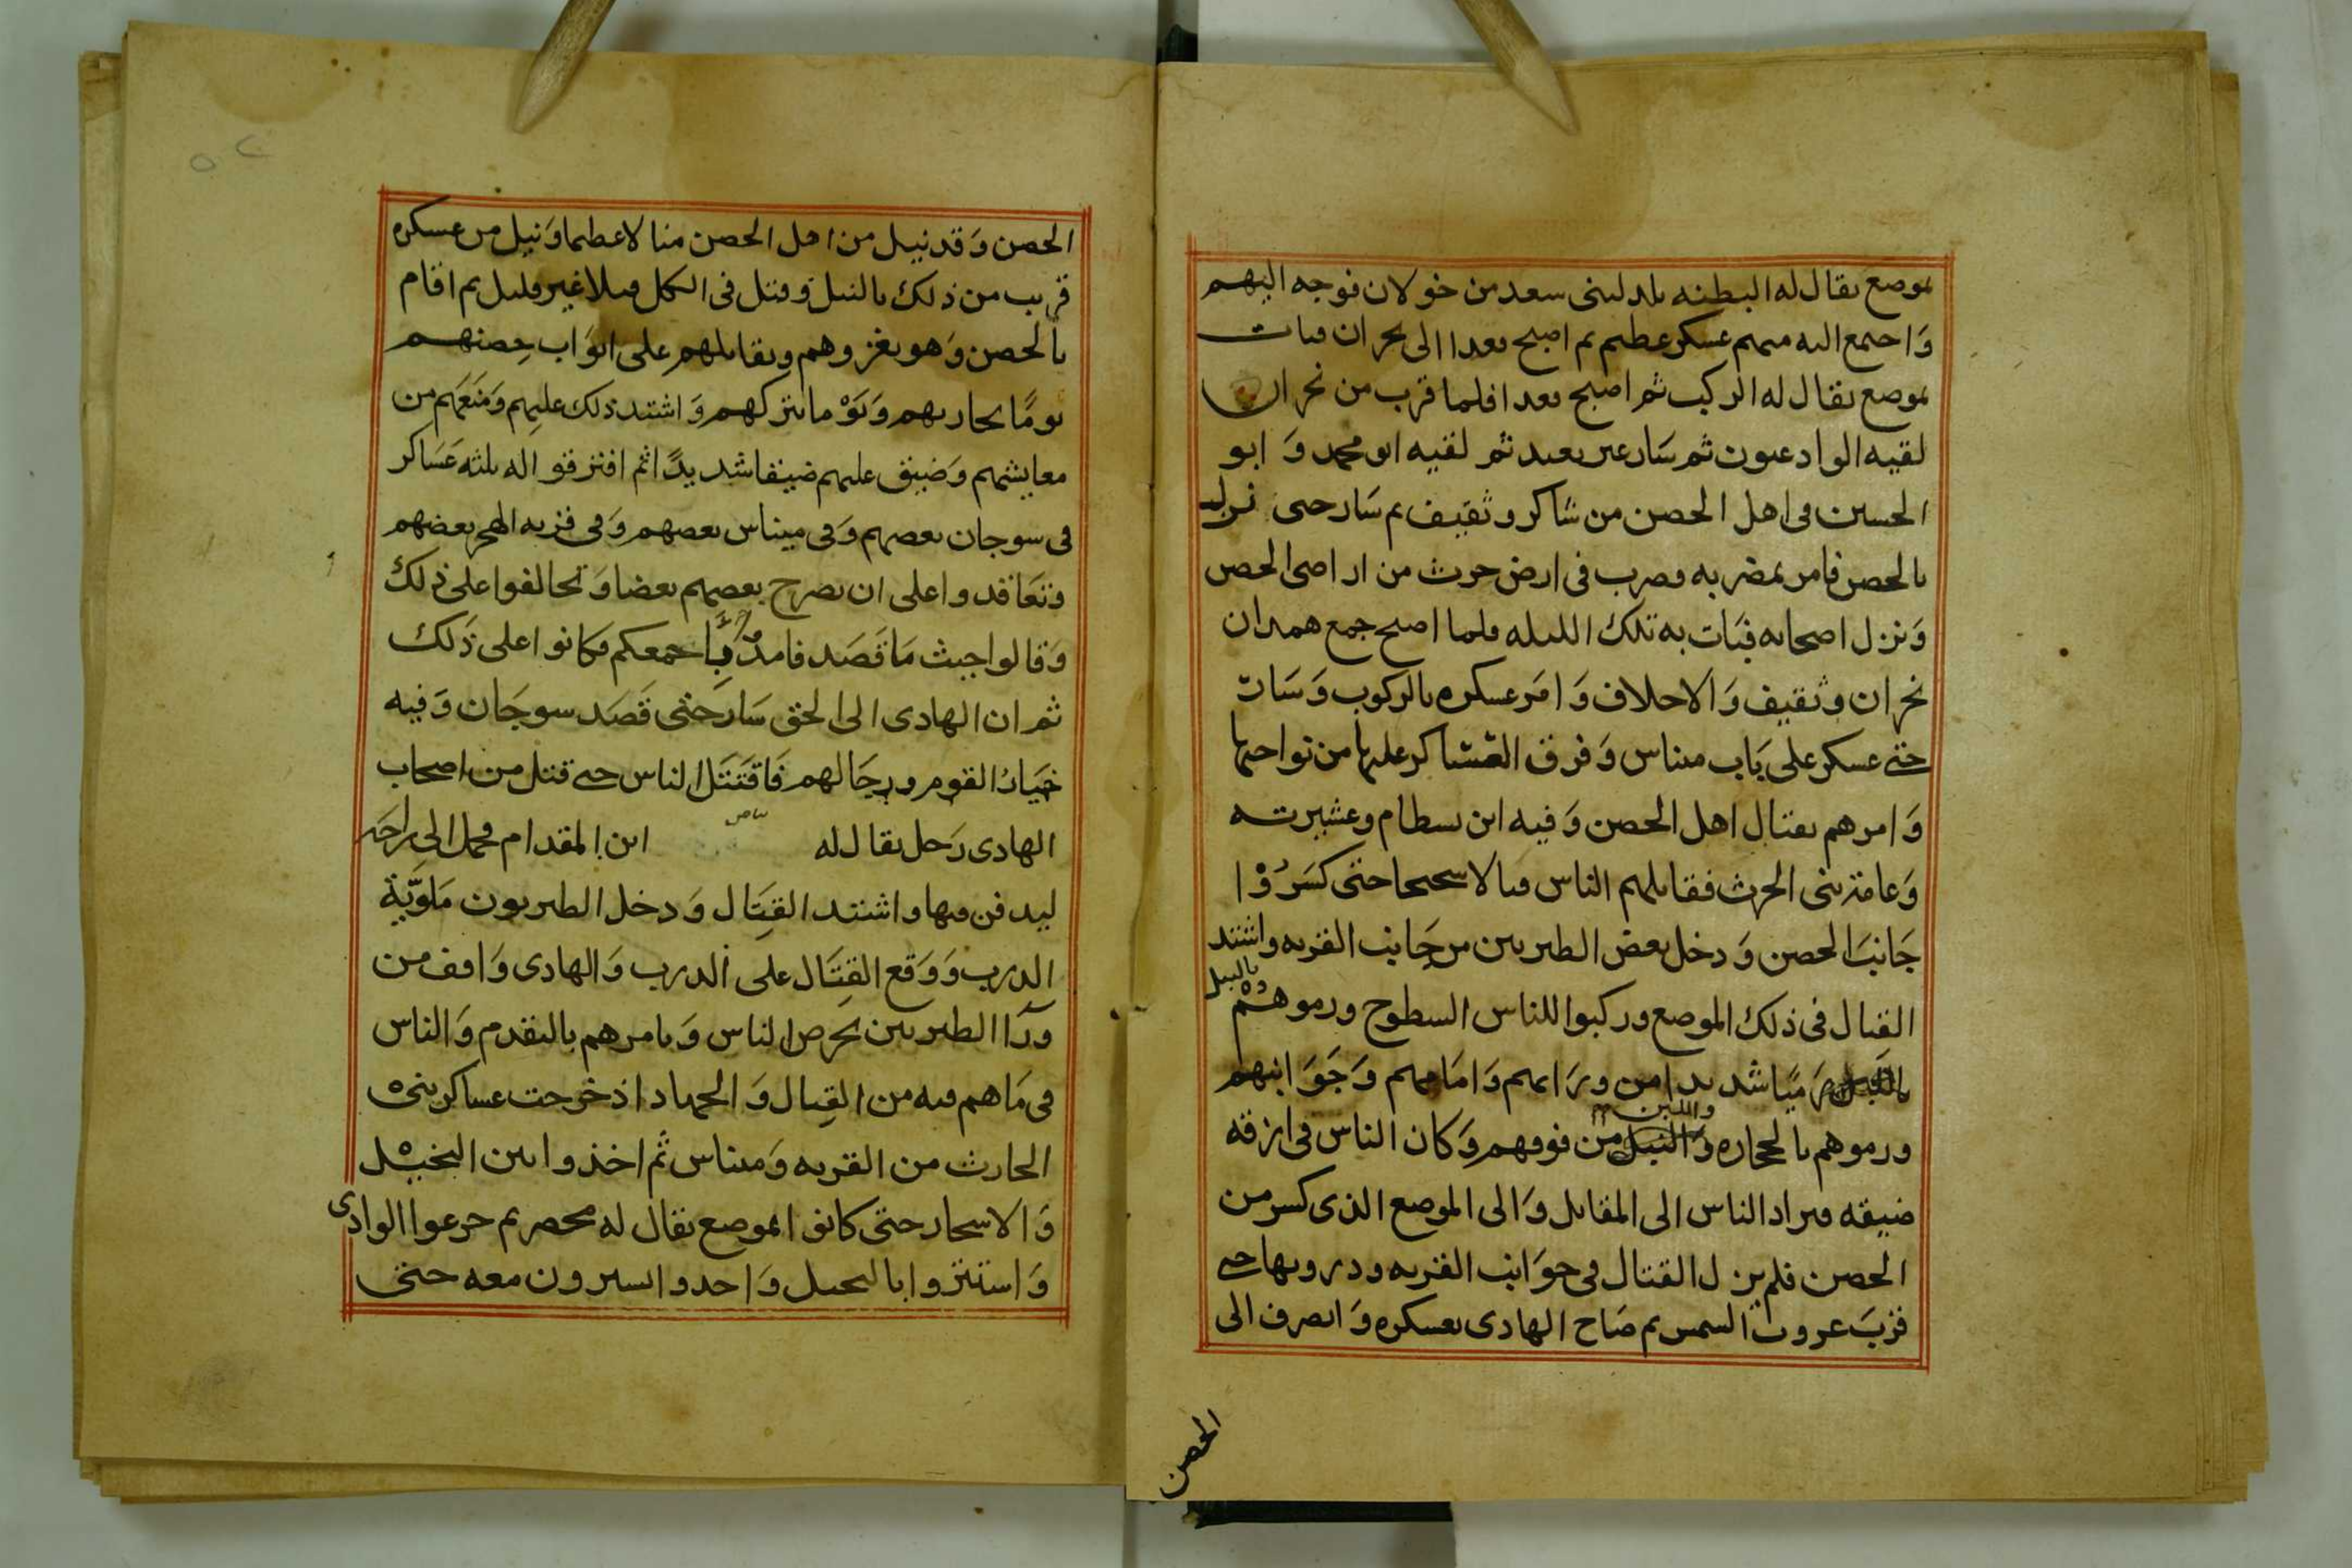 بموضع يقال له البطنه بلد لبنى سعد من خولان فوجه اليهم
وَاجتمع اليه منهم عسكر عظيم ثم اصبح بعدا الى نجران فبات
بموضع يقال له الركب ثم اصبح بعدا فلما قرب من نجران
لقيه الوادعيون ثم سَار غير بعيد ثم لقيه ابو محمد وَ ابو
الحسين فى اهل الحصن من شاكر وثقيف ثم سَار حتى نزل
بالحصن فامر بمضربه فضرب فى ارض حرث من اراضى الحصن
وَنزل اصحابه فبَات به تلك الليله فلما اصبح جمع همدان
نجران وثقيف وَالاحلاف وَامَر عسكره بالركوب وَسَار
حتى عسكر على بَاب ميناس وَفرق العساكر عليها من نواحيها
وَامرهم بقتال اهل الحصن وَفيه ابن بسطام وعشيرته
وَعامة بنى الحرث فقاتلهم الناس قتالا صحيحا حتى كسَرُوْا
جَانبَ الحصن وَدخل بعض الطبريين من جَانب القريه واشتد
القتال فى ذلك الموضع وركبوا للناس السطوح ورموهم بالنبل
رَميًا شديدا من ورَائهم وَامَامهم وَجَوَانبهم
ورموهم بالحجاره واللبن من فوقهم وَكان الناس فى ازقه
ضيقه فيراد الناس الى المقاتل وَالى الموضع الذى كسر من
الحصن فلم يزل القتال فى جوَانب القريه ودروبها حتى
قربَ غروب الشمس ثم صَاح الهادى بعسكره وَانصرف الى
الحصن
الحصن وَقد نيل من اهل الحصن منالا عظيما وَنيل من عسكره
قريب من ذلك بالنبل وَقتل فى الكل قتلا غير قليل ثم اقام
بالحصن وَهو يغزوهم ويقاتلهم على ابوَاب حِصنهم
يومًا يحاربهم وَيَوْما يتركهم وَاشتد ذلك عليهم وَمَنَعَهم من
معايشهم وَضيق عليهم ضيقا شديدًا ثم افترقوا له ثلثه عَسَاكر
فى سوجان بعضهم وَفى ميناس بعضهم وَفى قريه الهجر بعضهم
وتعَاقدوا على ان يصرخ بعضهم بعضا وَتحالفوا على ذلك
وَقالوا حيث مَا قَصَد باجمعكم فكانوا على ذَلك
ثم ان الهادى الى الحق سَارَ حتى قَصَد سوجَان وَفيه
خيَارُ القوم ورجَالهم فَاقتَتَل الناس حتى قتل من اصحاب
الهادى رَجل يقال له ابن المقدام فحمل الى
ليدفن فيها واشتد القتَال وَدخل الطبريون مَلويَّة
الدرب وَوَقع القِتَال على الدرب وَالهادى وَاقف من
ورَآ الطبريين يحرض الناس وَيامرهم بالتقدم وَالناس
فى مَا هم فيه من القِتال وَالجهاد اذ خرجت عساكر بنى
الحارث من القريه وَميناس ثم اخذوا بين النخيل
وَالاشجار حتى كانوا بموضع يقال له محصر ثم جزعوا الوادى
وَاستتروا بالنخيل وَاحدوا يسيرون معه حتى